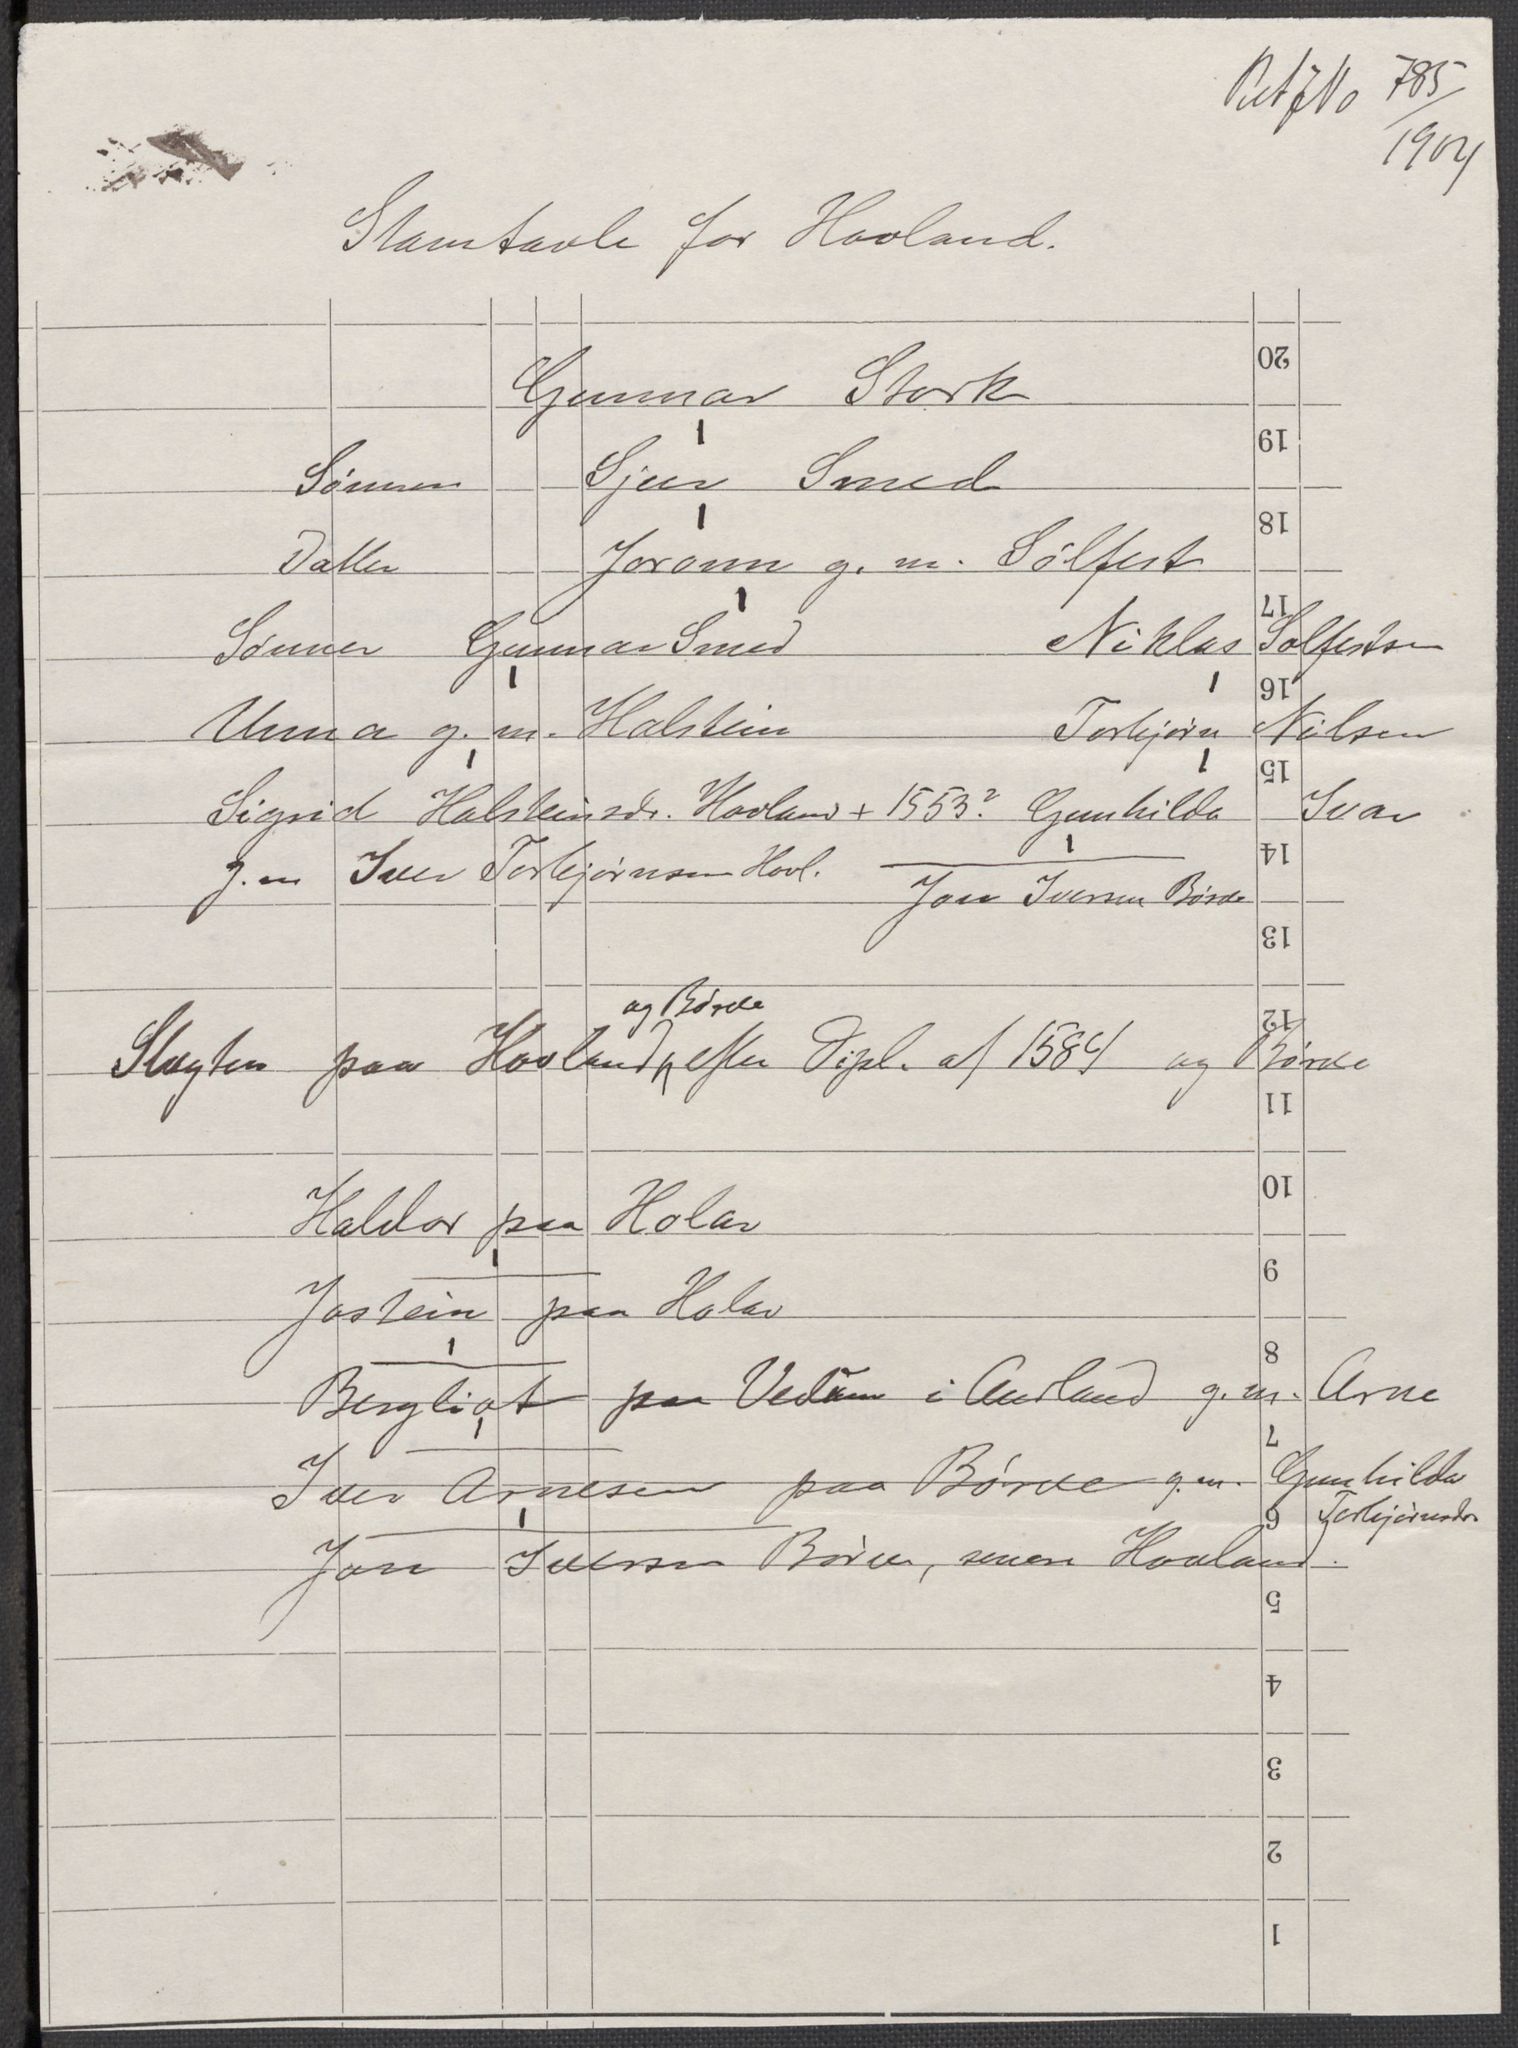 785/1904
Stamtavle for Hovland.
20
Gunnar Stork
19
Sønnen Sjur Smed
18
Datter Joronn g. m. Sölfest
17
Sønner Gunnar Smed Niklas Solfestsen
16
Unna g. m. Halstein Torbjørn Nilsen
15
Sigrid Halsteinsdr. Hovland + 1553? Gunhilda Ivar
14
g. m Iver Torbjørnsen Hovl. Jon Iversen Børde
13
og Børde
12
Slægten paa Hovland efter Dipl. af 1584 og Børde
11
10
Haldor paa Holar
9
Jostein paa Holar
8
Bergliot paa Vedum i Aurland g. m. Arne
7
Iver Arnesen paa Børde g. m. Gunhilda
6 Torbjørnsdr
Jon Iversen Børde, senere Hovland.
5
4
3
2
1